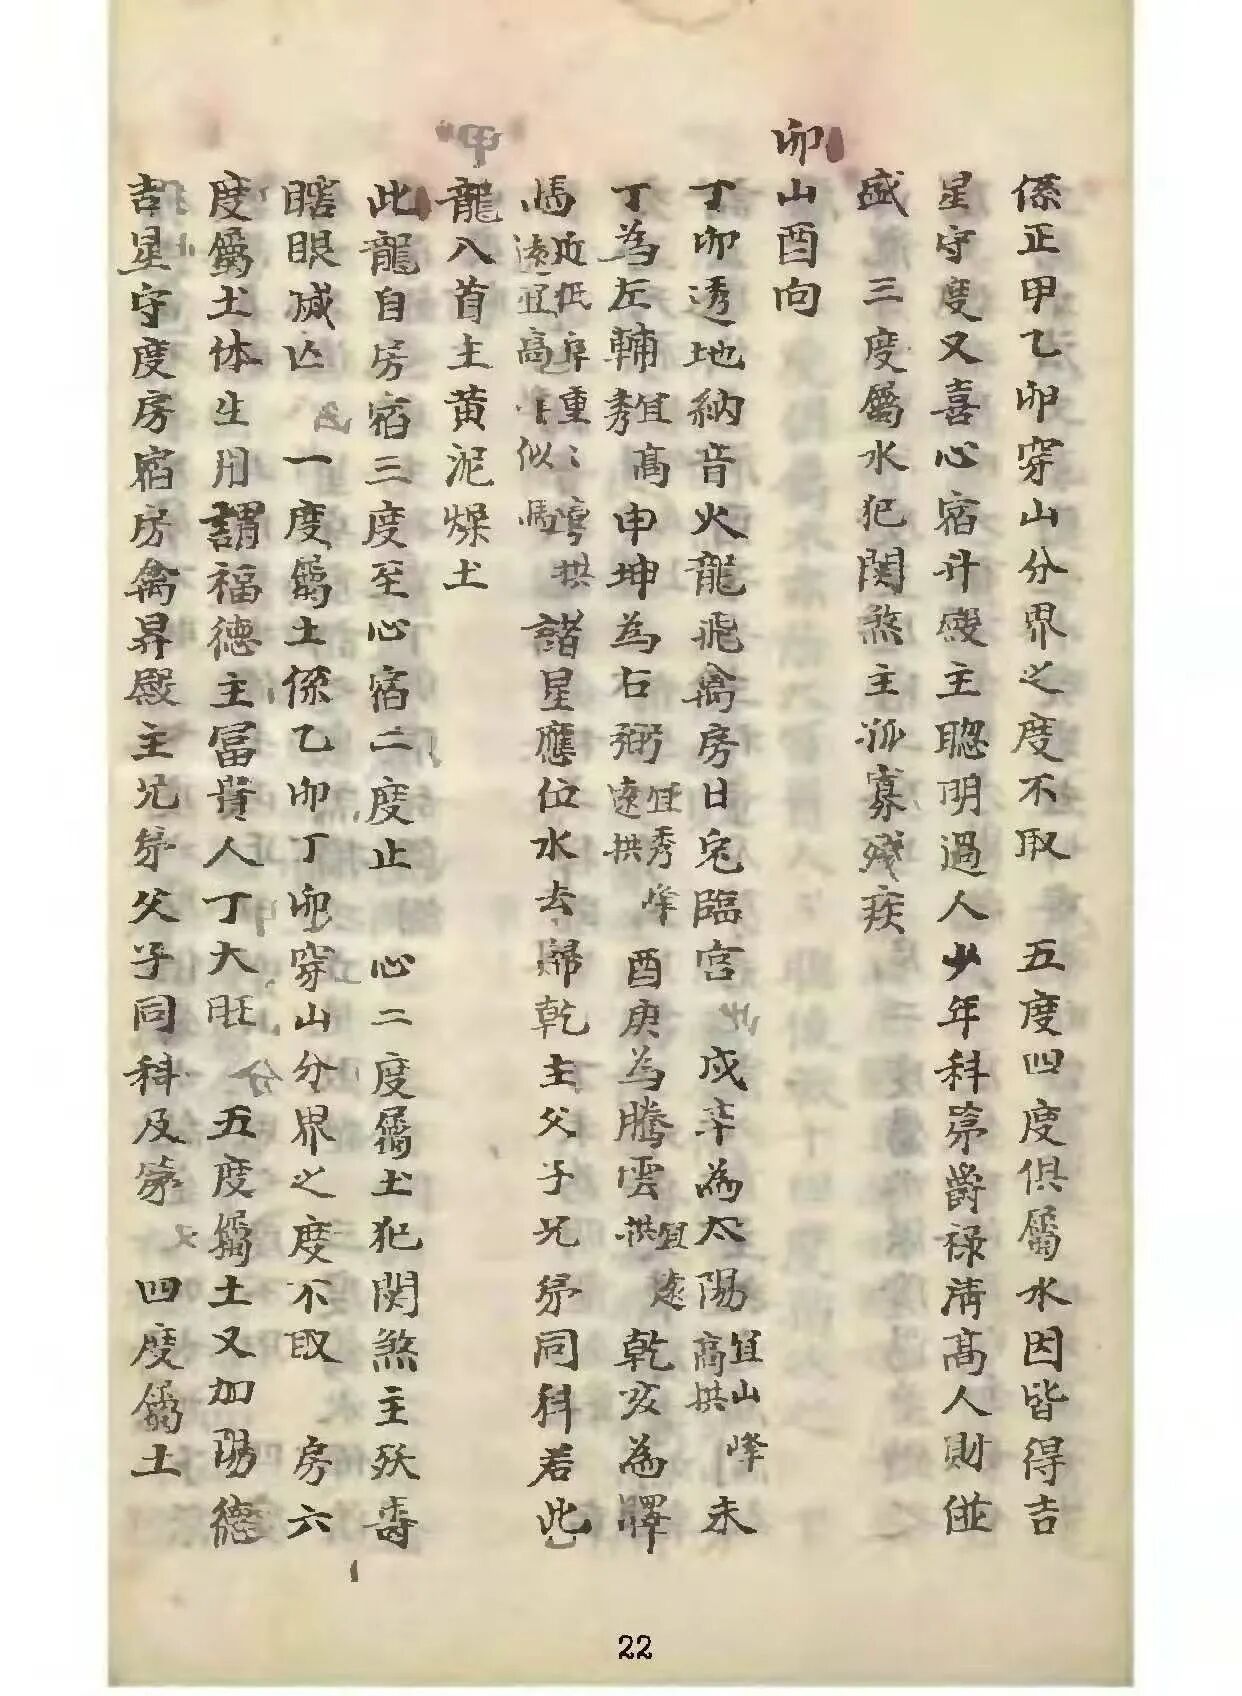 係正甲乙卯穿山分界之度不取　五度四度俱屬水因皆得吉
星守度又喜心宿升殿主聦明過人少年科苐爵祿清高人財並
盛　三度屬水犯関煞主孤寡殘疾
卯山酉向
丁卯透地納音火龍飛禽房日兔臨宮　戍辛為太陽宜山峰高拱未
丁為左輔宜高秀申坤為右弼宜秀峰遠拱酉庚為騰雲宜遠拱乾亥為驛
馬近低阜重〻彎拱遠宜高峰似馬諸星應位水去歸乾主父子兄弟同科若此
甲龍入首主黄泥燥土
此龍自房宿三度至心宿二度止　心二度屬土犯関煞主殀壽
瞎眼滅亡　一度屬土係乙卯丁卯穿山分界之度不取　房六
度屬土体生用謂福德主富貴人丁大旺　五度屬土又加陽德
吉星守度房宿房禽昇殿主兄弟父子同科及第　四度屬土
22